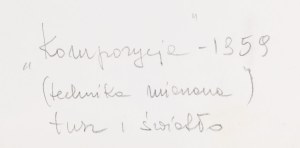 „Kompozycja" - 1959
(technika mieszana)
tusz i światło